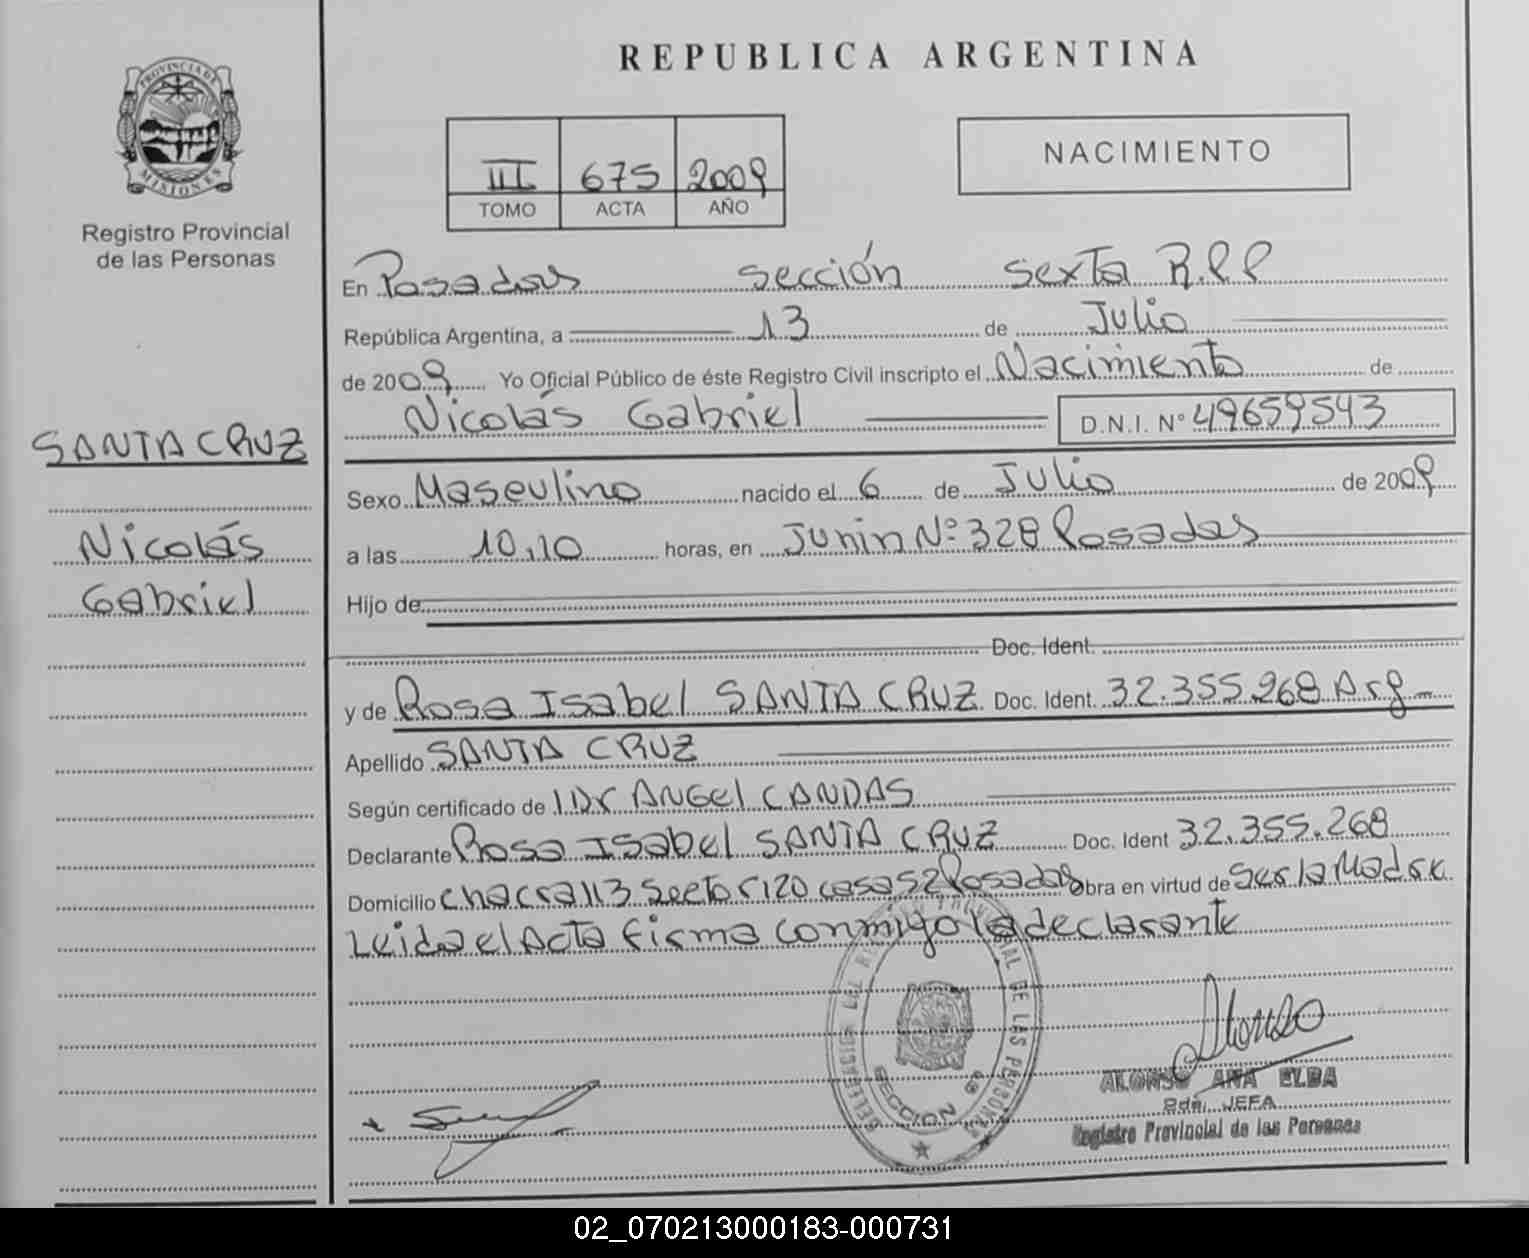 PROVINCIA DE
MISIONES
Registro Provincial
de las Personas
SANTA CRUZ
Nicolás
Gabriel
REPUBLICA ARGENTINA
III 675 2009
TOMO ACTA AÑO
NACIMIENTO
En Posadas sección sexta R.P.P
República Argentina, a 13 de Julio
de 2009 Yo Oficial Público de éste Registro Civil inscripto el Nacimiento de
Nicolás Gabriel D.N.I. Nº 49659543
Sexo Masculino nacido el 6 de Julio de 2009
a las 10,10 horas, en Junin Nº 328 Posadas
Hijo de
Doc. Ident.
y de Rosa Isabel SANTA CRUZ Doc. Ident. 32.355.268 Arg
Apellido SANTA CRUZ
Según certificado de Dr Angel CANDAS
Declarante Rosa Isabel SANTA CRUZ Doc. Ident 32.355.268
Domicilio chacra 113 Sector 120 casa 52 Posadas Obra en virtud de Ser la Madre
Leida el Acta firma conmigo la declarante
SECCION
Alonso
ALONSO ANA ELBA
2da. JEFA
Registro Provincial de las Personas
02_070213000183-000731